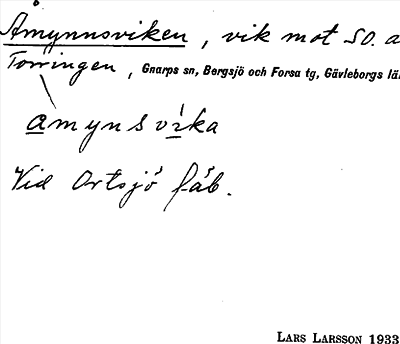 Åmynnsviken, vik mot SO. a
Torringen, Gnarps sn, Bergsjö och Forsa tg, Gävleborgs lä
amynsvika
Vid Ortsjö fäb.
LARS LARSSON 1933